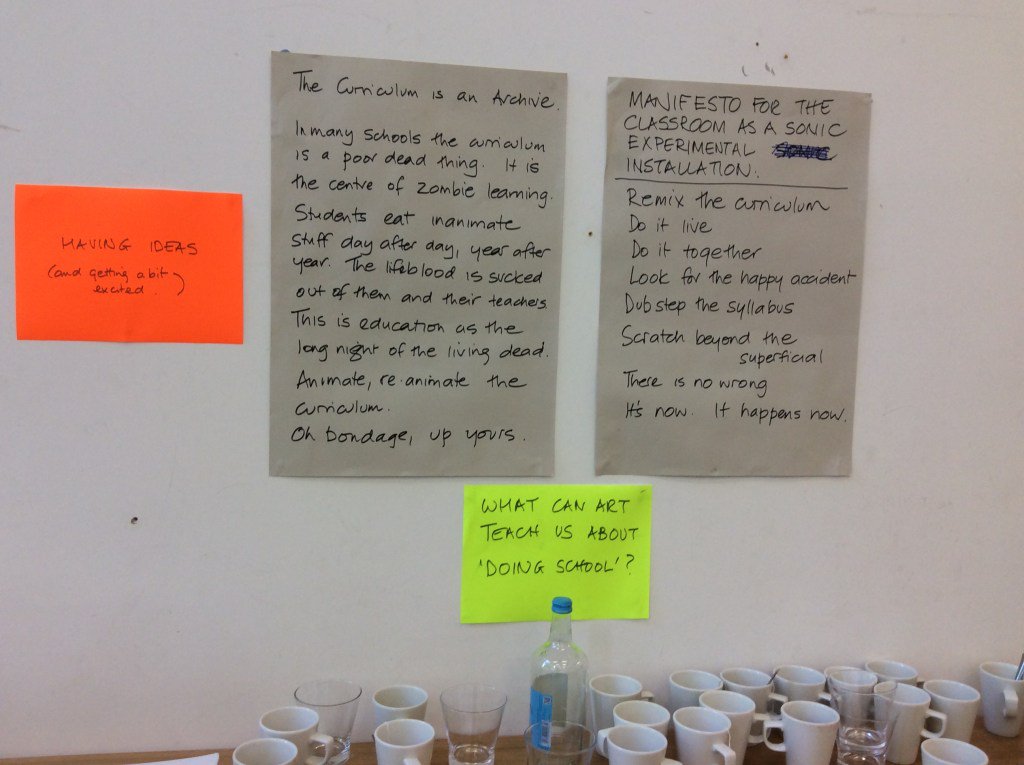 HAVING IDEAS
(and getting a bit
excited.)
The Curriculum is an Archive.
In many schools the curriculum
is a poor dead thing. It is
the centre of zombie learning.
Students eat inanimate
stuff day after day, year after
year. The lifeblood is sucked
out of them and their teachers.
This is education as the
long night of the living dead.
Animate, re-animate the
curriculum.
Oh bondage, up yours.
MANIFESTO FOR THE
CLASSROOM AS A SONIC
EXPERIMENTAL
INSTALLATION.
Remix the curriculum
Do it live
Do it together
Look for the happy accident
Dubstep the syllabus
Scratch beyond the
superficial
There is no wrong
It's now. It happens now.
WHAT CAN ART
TEACH US ABOUT
'DOING SCHOOL'?